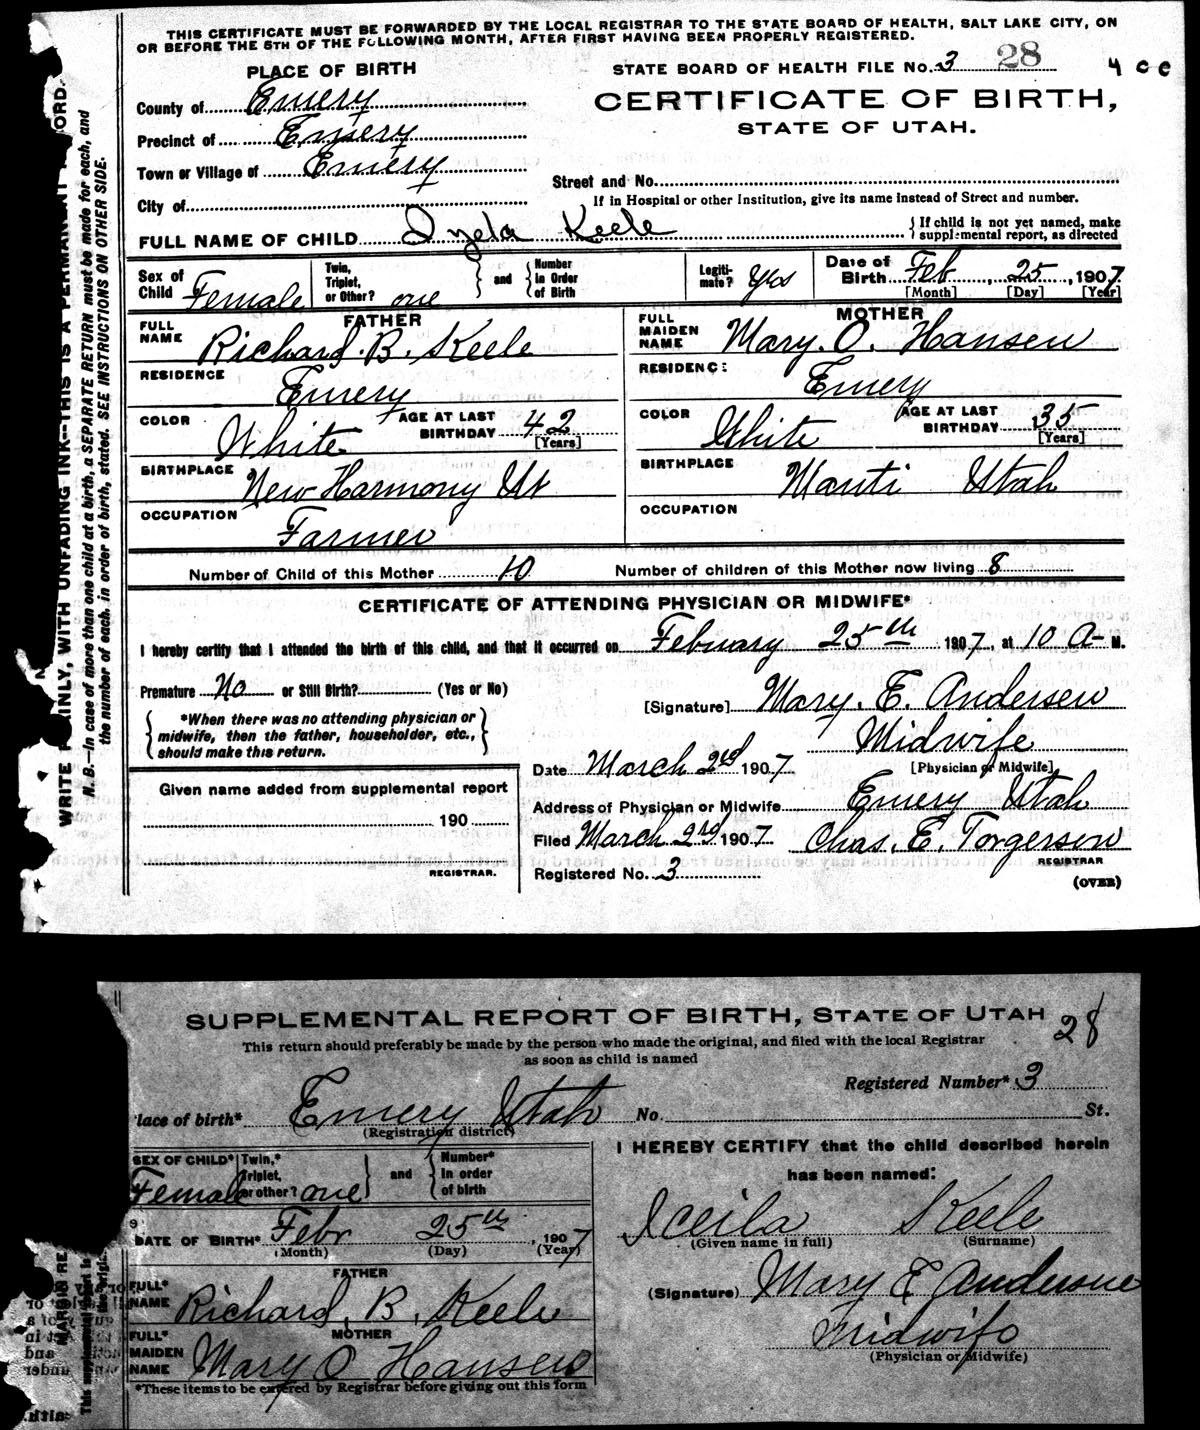 THIS CERTIFICATE MUST BE FORWARDED BY THE LOCAL REGISTRAR TO THE STATE BOARD OF HEALTH, SALT LAKE CITY, ON
OR BEFORE THE 5TH OF THE FOLLOWING MONTH, AFTER FIRST HAVING BEEN PROPERLY REGISTERED.
PLACE OF BIRTH
STATE BOARD OF HEALTH FILE No. 3 28
County of Emery
CERTIFICATE OF BIRTH,
STATE OF UTAH.
Precinct of Emery
Town or Village of Emery
Street and No.
City of
If in Hospital or other Institution, give its name instead of Street and number.
FULL NAME OF CHILD Keele { If child is not yet named, make supplemental report, as directed
Sex of Child Female Twin, Triplet, or Other? one } and { Number in Order of Birth Legiti-mate? Yes Date of Birth Feb 25, 1907
[Month] [Day] [Year]
FATHER MOTHER
FULL NAME Richard B. Keele FULL MAIDEN NAME Mary. O. Hansen
RESIDENCE Emery RESIDENCE Emery
COLOR White AGE AT LAST BIRTHDAY 42 [Years] COLOR White AGE AT LAST BIRTHDAY 35 [Years]
BIRTHPLACE New Harmony Ut BIRTHPLACE Manti Utah
OCCUPATION Farmer OCCUPATION
Number of Child of this Mother 10 Number of children of this Mother now living 8
CERTIFICATE OF ATTENDING PHYSICIAN OR MIDWIFE*
I hereby certify that I attended the birth of this child, and that it occurred on February 25th 1907, at 10 A M.
Premature No or Still Birth? (Yes or No)
[Signature] Mary. E. Andersen
*When there was no attending physician or
midwife, then the father, householder, etc.,
should make this return.
Midwife
Date March 2nd 1907 [Physician or Midwife]
Given name added from supplemental report
190
REGISTRAR.
Address of Physician or Midwife Emery Utah
Filed March 2nd 1907 Chas. E. Torgerson
REGISTRAR
Registered No. 3
(OVER)
N. B.—In case of more than one child at a birth, a SEPARATE RETURN must be made for each, and
the number of each, in order of birth, stated. SEE INSTRUCTIONS ON OTHER SIDE.
SUPPLEMENTAL REPORT OF BIRTH, STATE OF UTAH 28
This return should preferably be made by the person who made the original, and filed with the local Registrar
as soon as child is named
Registered Number* 3
lace of birth* Emery Utah No. St.
(Registration district)
SEX OF CHILD* Female Twin,* Triplet, or other? one } and { Number* In order of birth
I HEREBY CERTIFY that the child described herein
has been named:
DATE OF BIRTH* Febr 25th, 1907
(Month) (Day) (Year)
Iceila Keele
(Given name in full) (Surname)
FATHER
FULL* NAME Richard, B. Keele
(Signature) Mary E
MOTHER
FULL* MAIDEN NAME Mary O Hansen
Midwife
(Physician or Midwife)
*These items to be entered by Registrar before giving out this form